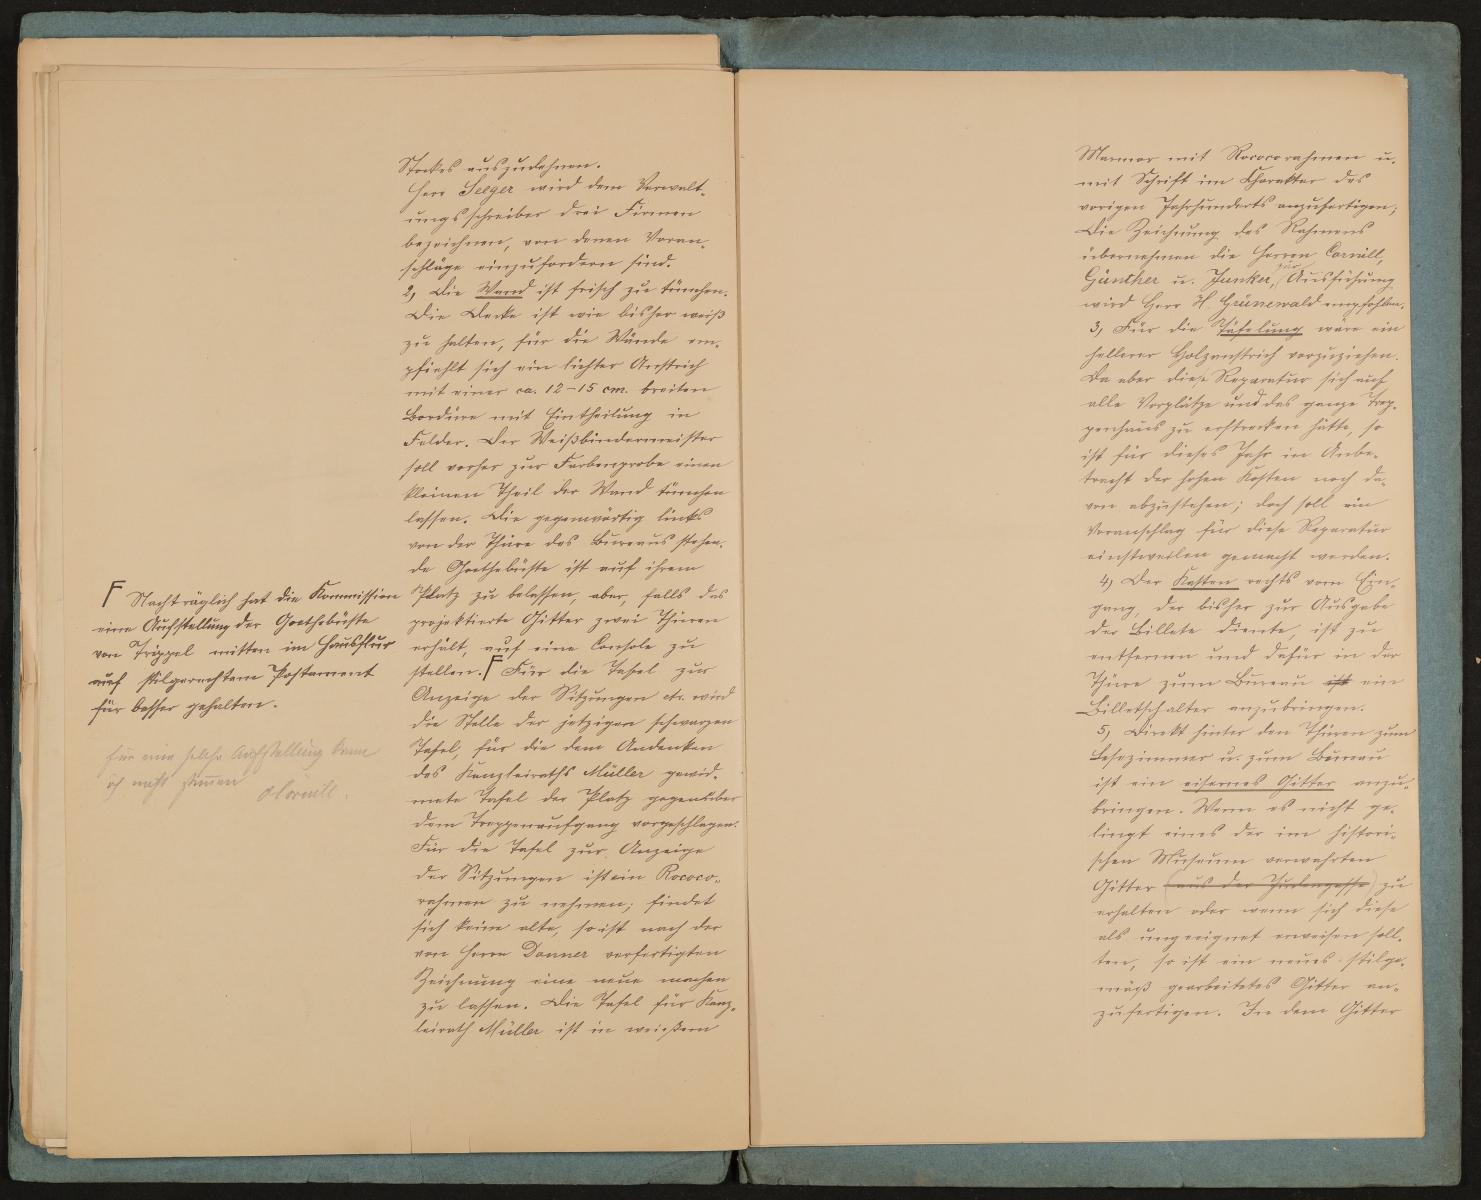 Stockes auszudehnen.
Herr Seeger wird dem Verwalt-
ungsschreiber drei Firmen
bezeichnen, von denen Voran-
schläge einzufordern sind.
2, Die Wand ist frisch zu tünchen.
Die Decke ist wie bisher weiß
zu halten, für die Wände em-
pfiehlt sich ein lichter Anstrich
mit einer ca. 12-15 cm. breiten
Bordüre mit Eintheilung in
Felder. Der Weißbindermeister
soll vorher zur Farbenprobe einen
kleinen Theil der Wand tünchen
lassen. Die gegenwärtig links
von der Thüre des Bureaus stehen-
de Goethebüste ist auf ihrem
Platz zu belassen, aber, falls das
projektierte Gitter zwei Thüren
erhält, auf eine Console zu
stellen. F Für die Tafel zur
Anzeige der Sitzungen etc. wird
die Stelle der jetzigen schwarzen
Tafel, für die dem Andenken
des Kanzleiraths Müller gewid-
mete Tafel der Platz gegenüber
dem Treppenaufgang vorgeschlagen.
Für die Tafel zur Anzeige
der Sitzungen ist ein Rococo-
rahmen zu nehmen; findet
sich keine alte, so ist nach der
von Herrn Donner verfertigten
Zeichnung eine neue machen
zu lassen. Die Tafel für Kanz-
leirath Müller ist in weißem
F Nachträglich hat die Kommission
eine Aufstellung der Goethebüste
von Trippel mitten im Hausflur
auf stilgerechtem Postament
für besser gehalten.
für eine solche Aufstellung kann
ich nicht stimmen
OCornill.
Marmor mit Rococorahmen u.
mit Schrift im Charakter des
vorigen Jahrhunderts anzufertigen;
Die Zeichnung des Rahmens
übernehmen die Herren Cornill,
Günther u. Junker, zur Ausführung
wird Herr H. Grünewald empfohlen.
3, Für die Täfelung wäre ein
hellerer Holzanstrich vorzuziehen.
Da aber diese Reparatur sich auf
alle Vorplätze und das ganze Trep-
penhaus zu erstrecken hätte, so
ist für dieses Jahr in Anbe-
tracht der hohen Kosten noch da-
von abzustehen; doch soll ein
Voranschlag für diese Reparatur
einstweilen gemacht werden.
4, Der Kasten rechts vom Ein-
gang, der bisher zur Ausgabe
der Billete diente, ist zu
entfernen und dafür in der
Thüre zum Bureau ist ein
Billetschalter anzubringen.
5, Direkt hinter den Thüren zum
Lesezimmer u. zum Bureau
ist ein eisernes Gitter anzu-
bringen. Wenn es nicht ge-
lingt eines der im histori-
schen Museum verwahrten
Gitter (aus der Judengasse) zu
erhalten oder wenn sich diese
als ungeeignet erweisen soll-
ten, so ist ein neues stilge-
mäß gearbeitetes Gitter an-
zufertigen. In dem Gitter